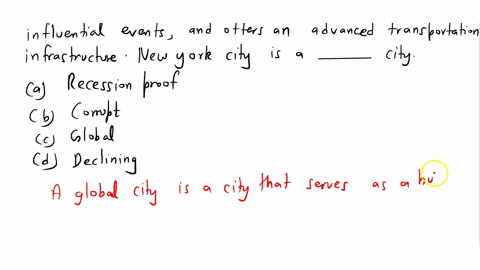 influential events, and offers an advanced transportation
infrastructure. New york city is a ______ city.
(a) Recession proof
(b) Corrupt
(c) Global
(d) Declining
A global city is a city that serves as a